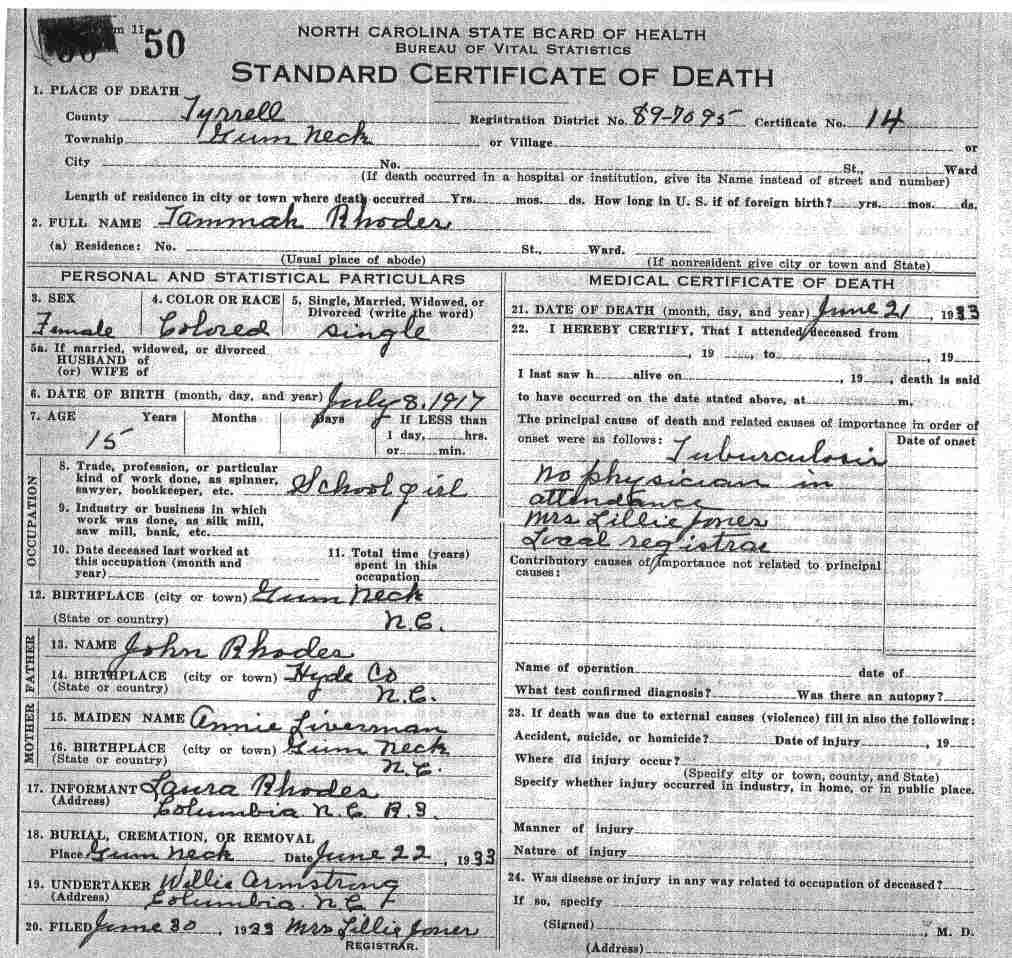 50
NORTH CAROLINA STATE BOARD OF HEALTH
BUREAU OF VITAL STATISTICS
STANDARD CERTIFICATE OF DEATH
1. PLACE OF DEATH
County Tyrrell Registration District No. 89-7095 Certificate No. 14
Township Gum Neck or Village or
City No. St., Ward
(If death occurred in a hospital or institution, give its Name instead of street and number)
Length of residence in city or town where death occurred Yrs. mos. ds. How long in U. S. if of foreign birth? yrs. mos. ds.
2. FULL NAME Tammah Rhodes
(a) Residence: No. St., Ward.
(Usual place of abode) (If nonresident give city or town and State)
PERSONAL AND STATISTICAL PARTICULARS
3. SEX 4. COLOR OR RACE 5. Single, Married, Widowed, or
Divorced (write the word)
Female Colored single
5a. If married, widowed, or divorced
HUSBAND of
(or) WIFE of
6. DATE OF BIRTH (month, day, and year) July 8, 1917
7. AGE Years Months Days If LESS than
15 1 day, hrs.
or min.
OCCUPATION
8. Trade, profession, or particular
kind of work done, as spinner,
sawyer, bookkeeper, etc. School girl
9. Industry or business in which
work was done, as silk mill,
saw mill, bank, etc.
10. Date deceased last worked at
this occupation (month and
year)
11. Total time (years)
spent in this
occupation
12. BIRTHPLACE (city or town) Gum Neck
(State or country) N.C.
FATHER
13. NAME John Rhodes
14. BIRTHPLACE (city or town) Hyde Co
(State or country) N.C.
MOTHER
15. MAIDEN NAME Annie Liverman
16. BIRTHPLACE (city or town) Gum Neck
(State or country) N.C.
17. INFORMANT Laura Rhodes
(Address) Columbia N.C. R.3.
18. BURIAL, CREMATION, OR REMOVAL
Place Gum Neck Date June 22, 1933
19. UNDERTAKER Willie Armstrong
(Address) Columbia N.C.
20. FILED June 30, 1933 Mrs Lillie Jones
REGISTRAR.
MEDICAL CERTIFICATE OF DEATH
21. DATE OF DEATH (month, day, and year) June 21, 1933
22. I HEREBY CERTIFY, That I attended deceased from
, 19 , to , 19
I last saw h alive on , 19 , death is said
to have occurred on the date stated above, at m.
The principal cause of death and related causes of importance in order of
onset were as follows: Date of onset
Tuburculosis
No physician in
attendance
Mrs Lillie Jones
Local registrar
Contributory causes of importance not related to principal
causes:
Name of operation date of
What test confirmed diagnosis? Was there an autopsy?
23. If death was due to external causes (violence) fill in also the following:
Accident, suicide, or homicide? Date of injury , 19
Where did injury occur?
(Specify city or town, county, and State)
Specify whether injury occurred in industry, in home, or in public place.
Manner of injury
Nature of injury
24. Was disease or injury in any way related to occupation of deceased?
If so, specify
(Signed) , M. D.
(Address)